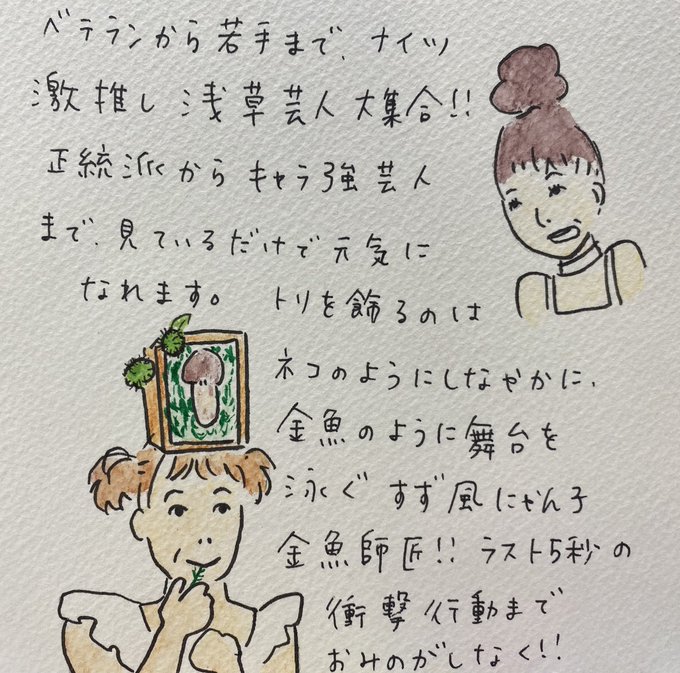 ベテランから若手まで、ナイツ
激推し浅草芸人大集合!!
正統派からキャラ強芸人
まで、見ているだけで元気に
なれます。
トリを飾るのは
ネコのようにしなやかに、
金魚のように舞台を
泳ぐすず風にゃん子
金魚師匠!!ラスト5秒の
衝撃行動まで
おみのがしなく!!